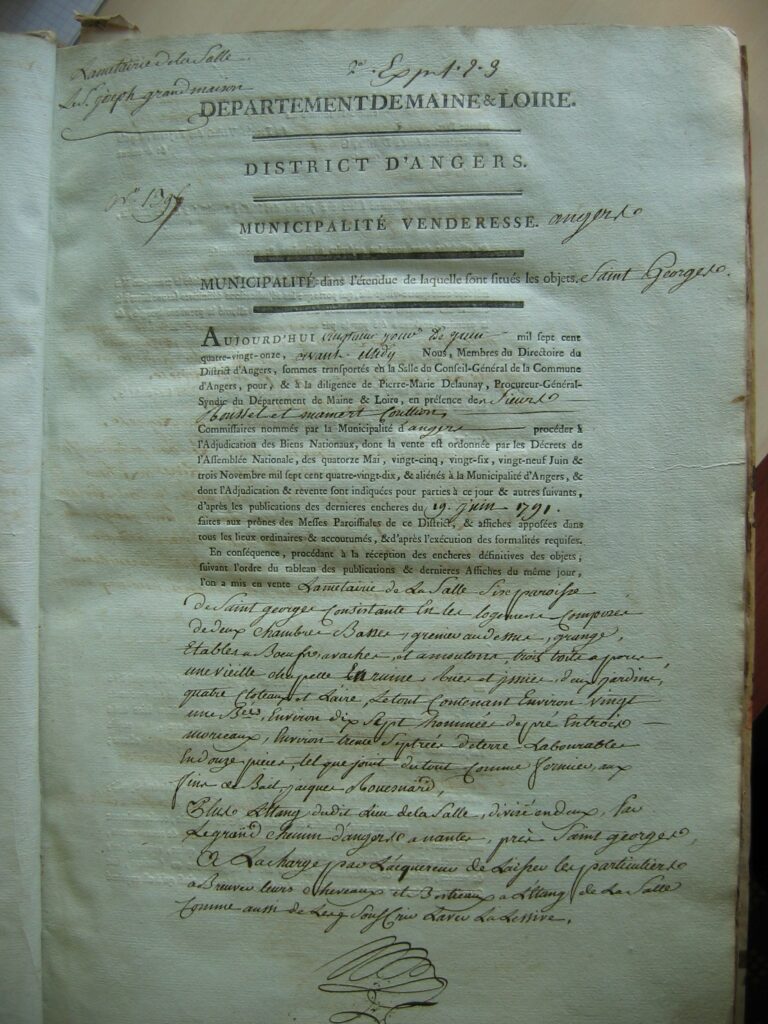 Lametairie de la Salle
Le S. joseph grandmaison
DEPARTEMENT DE MAINE & LOIRE.
DISTRICT D'ANGERS.
MUNICIPALITÉ VENDERESSE. angers
MUNICIPALITÉ dans l'étendue de laquelle sont situés les objets. Saint Georges.
AUJOURD'HUI jour de juin mil sept cent
quatre-vingt-onze, avant midy Nous, Membres du Directoire du
District d'Angers, sommes transportés en la Salle du Conseil-Général de la Commune
d'Angers, pour, & à la diligence de Pierre-Marie Delaunay, Procureur-Général-
Syndic du Département de Maine & Loire, en présence des Sieurs
Roussel et mamert Coullion,
Commissaires nommés par la Municipalité d'angers procéder à
l'Adjudication des Biens Nationaux, dont la vente est ordonnée par les Décrets de
l'Assemblée Nationale, des quatorze Mai, vingt-cinq, vingt-six, vingt-neuf Juin &
trois Novembre mil sept cent quatre-vingt-dix, & aliénés à la Municipalité d'Angers, &
dont l'Adjudication & revente sont indiquées pour parties à ce jour & autres suivants,
d'après les publications des dernieres encheres du 19. juin 1791.
faites aux prônes des Messes Paroissiales de ce District, & affiches apposées dans
tous les lieux ordinaires & accoutumés, & d'après l'exécution des formalités requises.
En conséquence, procédant à la réception des encheres définitives des objets;
suivant l'ordre du tableau des publications & dernieres Affiches du même jour,
l'on a mis en vente Lametairie de La Salle Sise paroisse
de Saint georges Consistante En les logements Composés
de deux chambres Basses, grenier au dessus, grange,
Etables a Boeufs, avaches, et amoutons, trois toits a porcs
une vieille chapelle En ruine, deux jardins,
quatre Cloteaux et Laire, Le tout Contenant Environ vingt
une Environ dix Sept hommées de pré En trois
morceaux, Environ trente Septrées de terre Labourable
En douze pieces, tel que jouit du tout Comme fermier, aux
fins de Bail, jacques Rouesnard,
Plus Lettang dudit Lieu de la Salle, divisé en deux, par
Le grand Chemin d'angers a nantes, près Saint georges,
a La charge par L'acquereur de Laisser les particuliers
abreuver leurs Chevaux et Bestiaux a Lettang de La Salle
Comme aussi de Laver La Lessive.